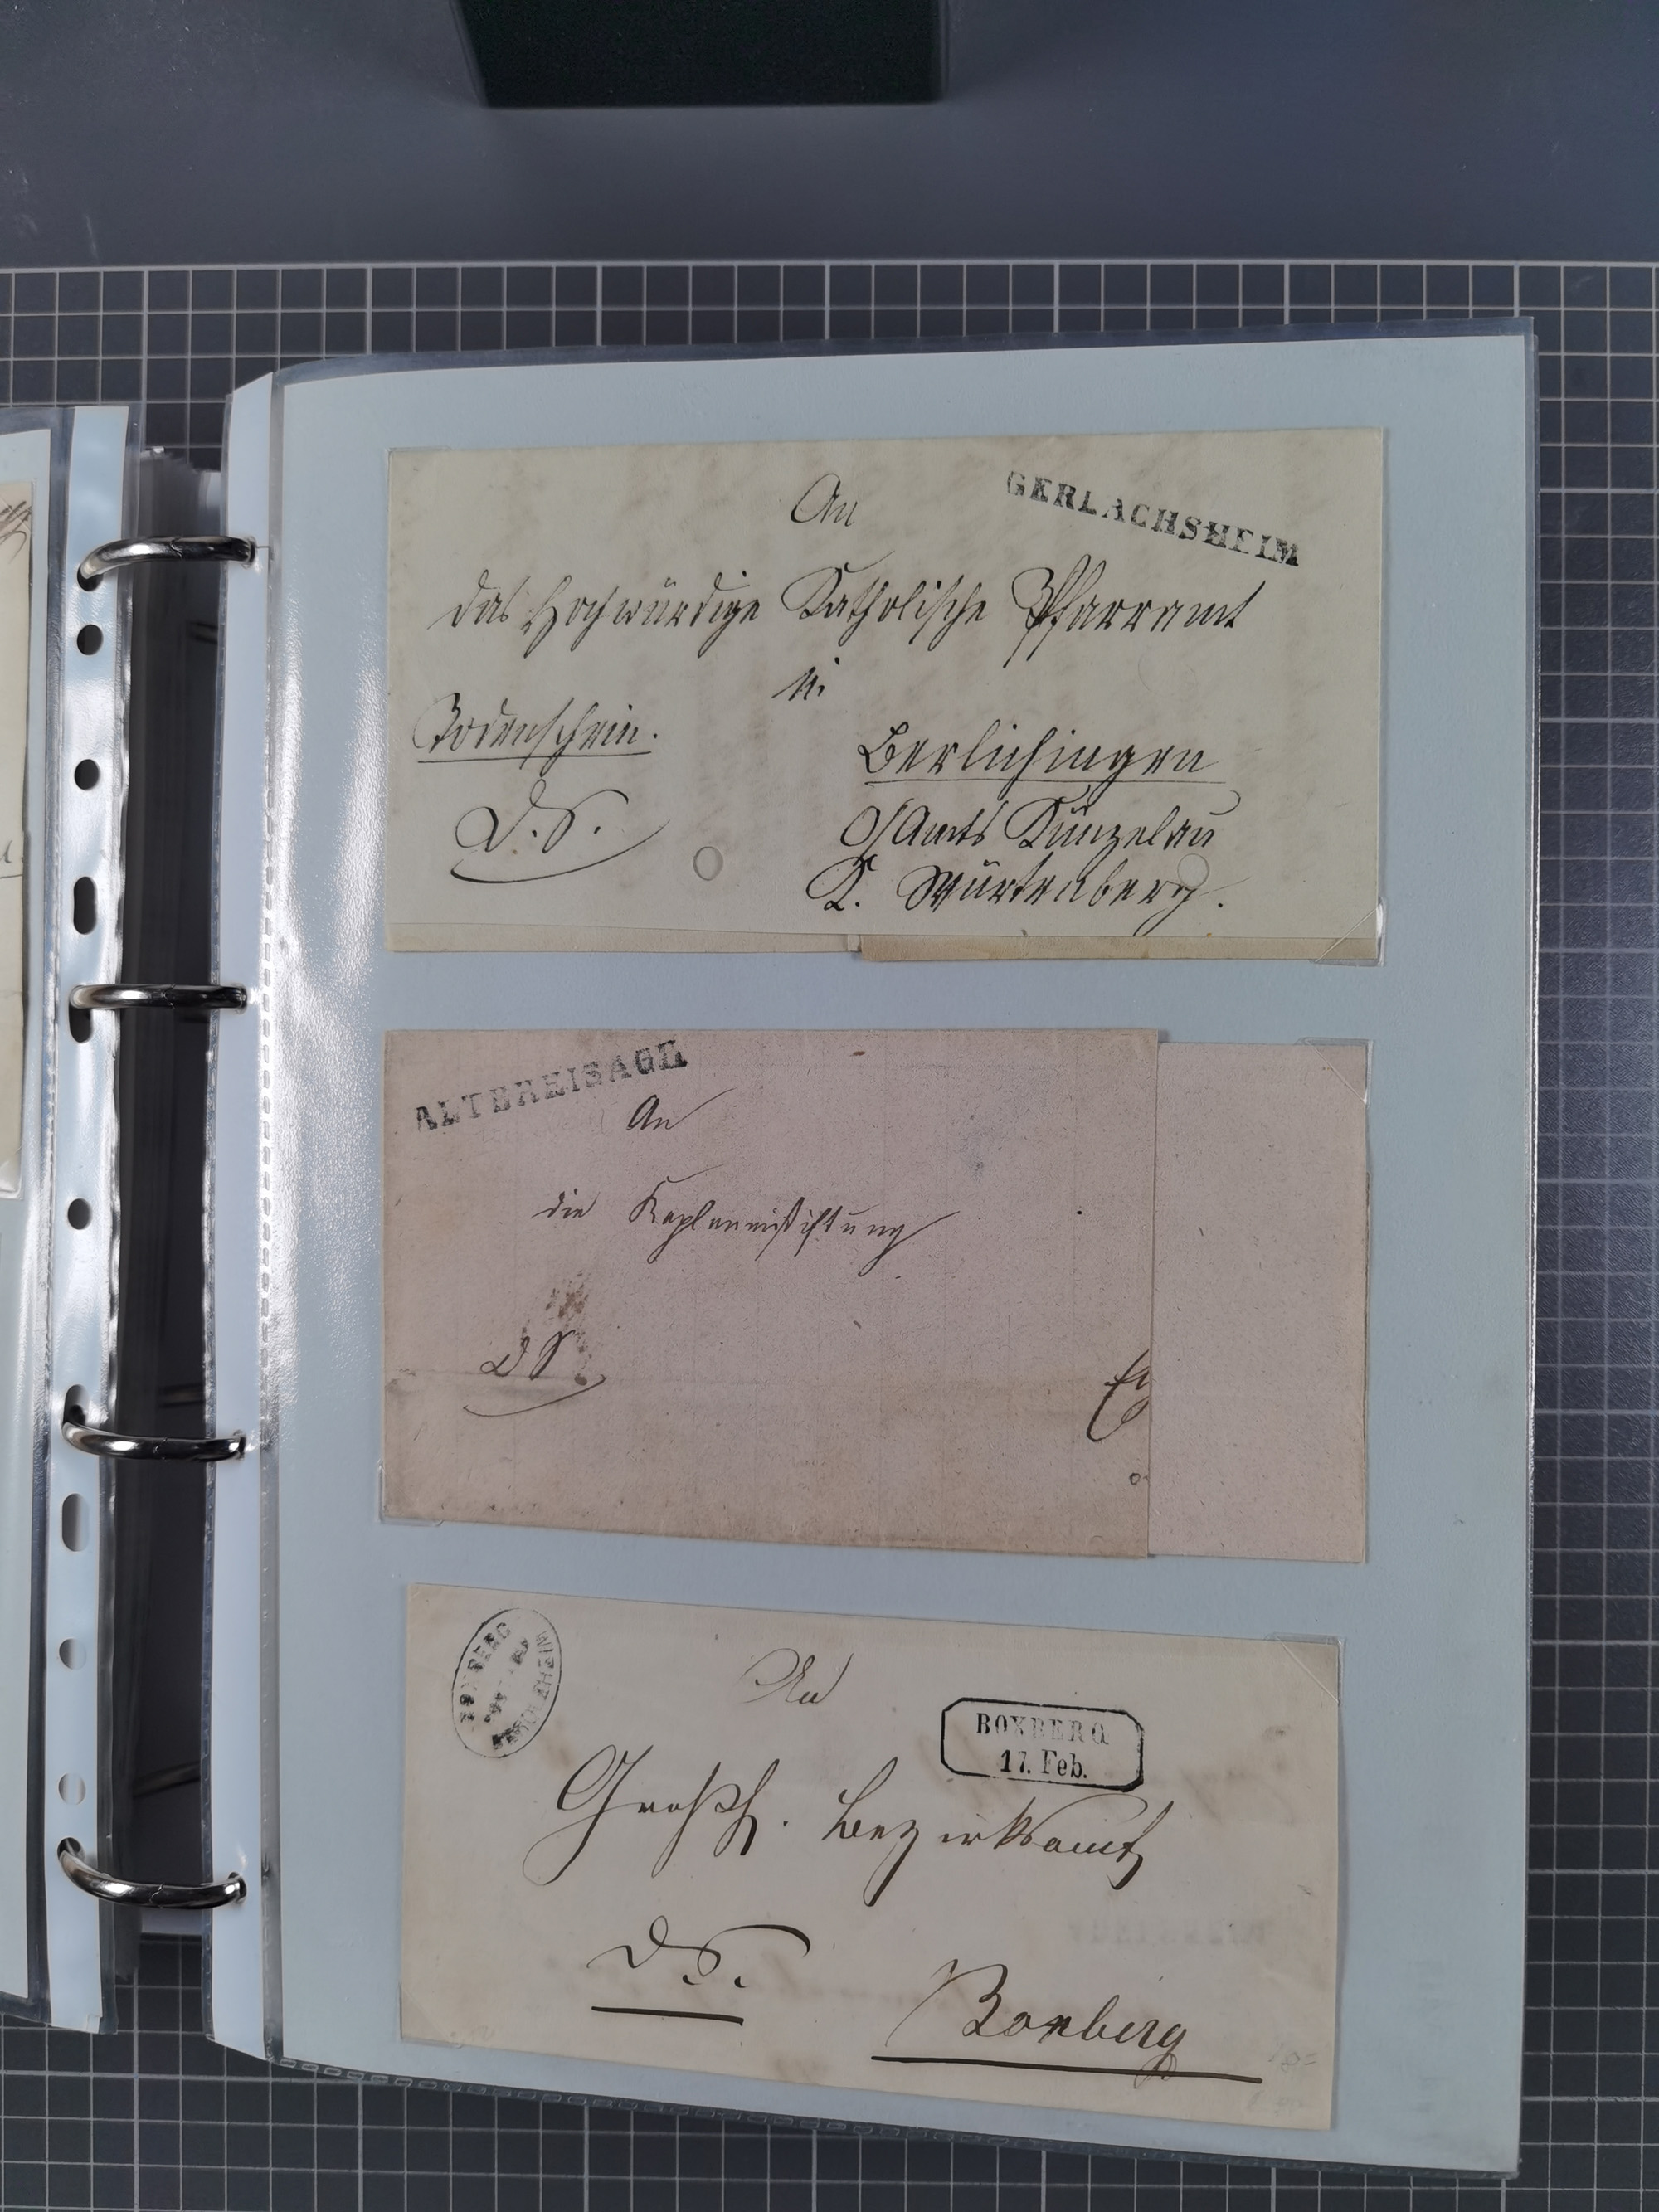 GERLACHSHEIM
An
das Hochwürdige Katholische Pfarramt
in
Todenschein.
Berlichingen
D. S.
O/Amts Künzelau
K. Würtenberg.
ALTBREISACH
An
die Kaplaneistiftung
D S
BOXBERG
An
BOXBERG
17. Feb.
Großh. Bezirksamt
D. S.
Boxberg